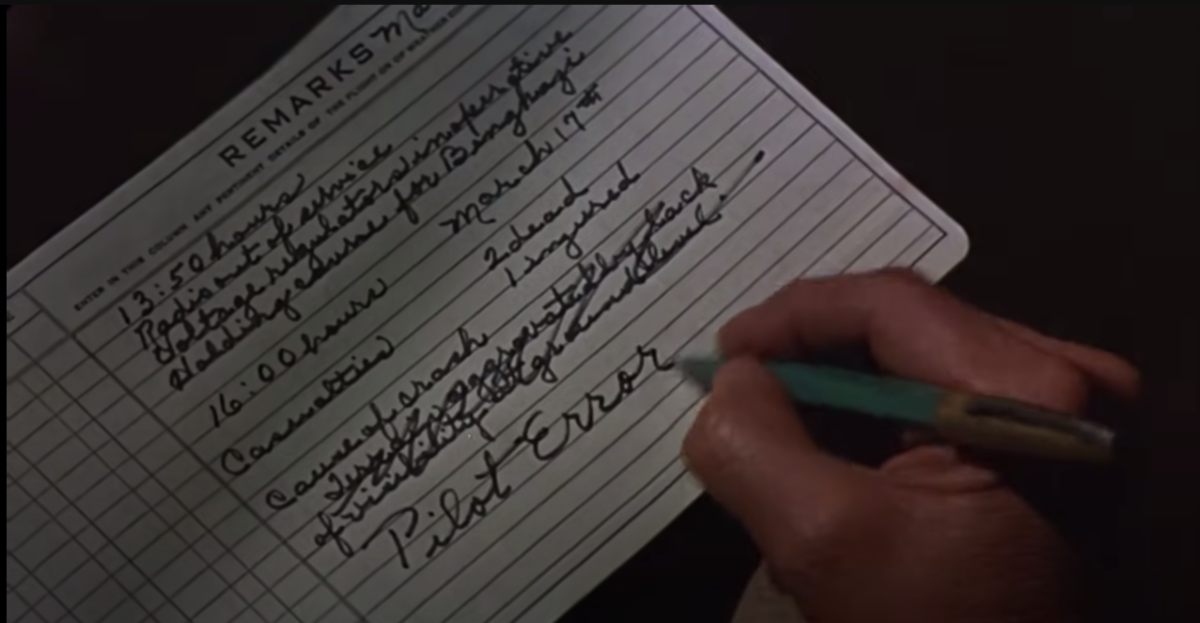 REMARKS Ma
ENTER IN THIS COLUMN ANY PERTINENT DETAILS OF THE FLIGHT OR OF WEATHER
13:50 hours
Radio out of service
Voltage regulators inoperative
Holding course for Binghazi
16:00 hours March 17th
Casualties 2 dead
1 injured
cause of crash
aggravated by lack
of visibility at ground level.
Pilot Error